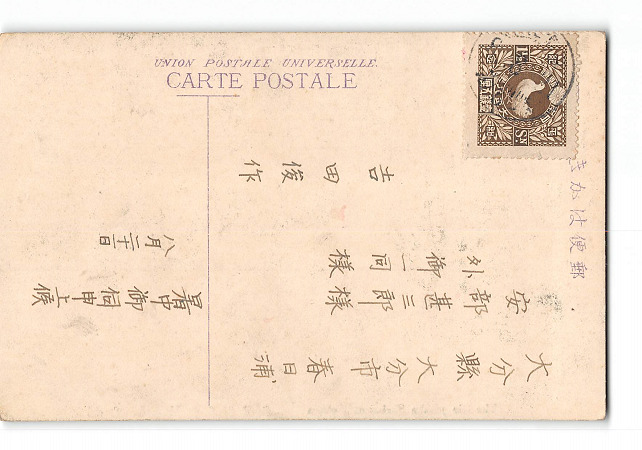 UNION POSTALE UNIVERSELLE.
CARTE POSTALE
郵便はかき
大分縣大分市春日浦
安部甚三郎様
外御一同様
吉田俊作
暑中御伺申上候
八月二十日